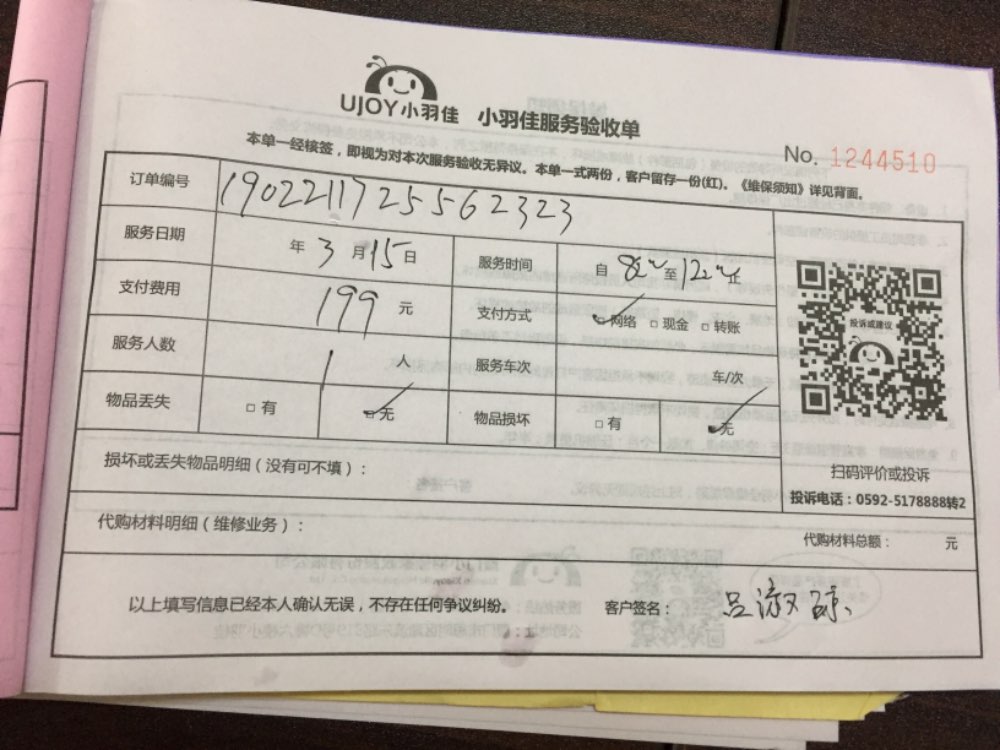 UJOY小羽佳 小羽佳服务验收单
No. 1244510
本单一经核签，即视为对本次服务验收无异议。本单一式两份，客户留存一份(红)。《维保须知》详见背面。
订单编号 1902211725562323
服务日期 年 3 月 15 日 服务时间 自 至 止
支付费用 199 元 支付方式 网络 □ 现金 □ 转账
投诉或建议
服务人数 1 人 服务车次 车/次
物品丢失 □ 有 ☑ 无 物品损坏 □ 有 ☑ 无
损坏或丢失物品明细（没有可不填）：
扫码评价或投诉
投诉电话：0592-5178888转2
代购材料明细（维修业务）：
代购材料总额： 元
以上填写信息已经本人确认无误，不存在任何争议纠纷。 客户签名： 吕淑